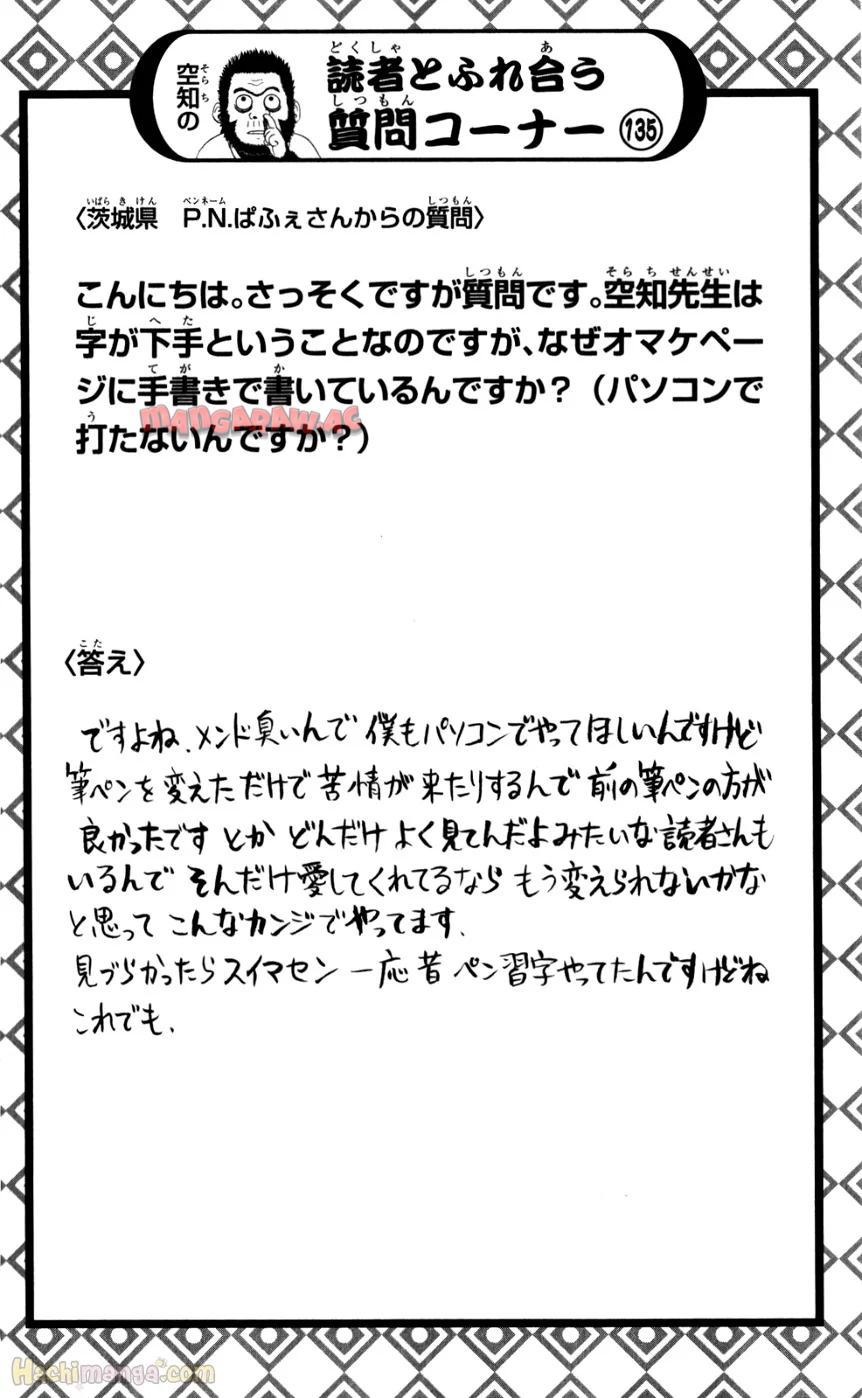 空知の
読者とふれ合う
質問コーナー 135
〈茨城県 P.N.ぱふぇさんからの質問〉
こんにちは。さっそくですが質問です。空知先生は
字が下手ということなのですが、なぜオマケペー
ジに手書きで書いているんですか？（パソコンで
打たないんですか？）
MANGARAW.AC
〈答え〉
ですよね、メンド臭いんで 僕もパソコンでやってほしいんですけど
筆ペンを変えただけで苦情が来たりするんで 前の筆ペンの方が
良かったです とか どんだけよく見てんだよみたいな読者さんも
いるんで そんだけ愛してくれてるなら もう変えられないかな
と思って こんなカンジでやってます、
見づらかったらスイマセン 一応昔 ペン習字やってたんですけどね
これでも、
Hachimanga.com